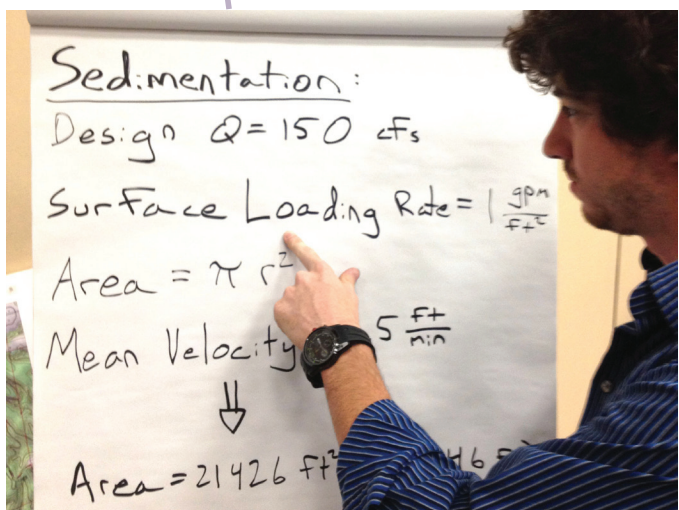 Sedimentation:
Design Q = 150 cfs
Surface Loading Rate = 1 gpm/ft²
Area = π r²
Mean Velocity 5 ft/min
⇓
Area = 21426 ft² 46